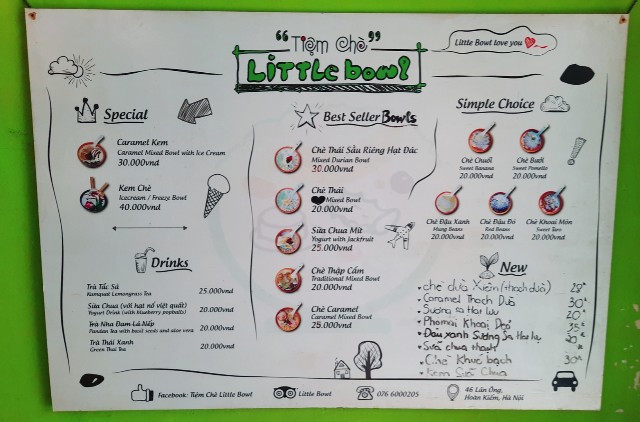 “Tiệm Chè”
LiTTLe bowl
Little Bowl love you
Special
Caramel Kem
Caramel Mixed Bowl with Ice Cream
30.000vnd
Kem Chè
Icecream / Freeze Bowl
40.000vnd
Drinks
Trà Tắc Sả
Kumquat Lemongrass Tea
25.000vnd
Sữa Chua (với hạt nổ việt quất)
Yogurt Drink (with blueberry popballs)
20.000vnd
Trà Nha Đam Lá Nếp
Pandan tea with basil seeds and aloe vera
20.000vnd
Trà Thái Xanh
Green Thai Tea
20.000vnd
Best Seller Bowls
Chè Thái Sầu Riêng Hạt Đác
Mixed Durian Bowl
30.000vnd
Chè Thái
Mixed Bowl
20.000vnd
Sữa Chua Mít
Yogurt with Jackfruit
25.000vnd
Chè Thập Cẩm
Traditional Mixed Bowl
20.000vnd
Chè Caramel
Caramel Mixed Bowl
25.000vnd
Simple Choice
Chè Chuối
Sweet Banana
20.000vnd
Chè Bưởi
Sweet Pomelo
20.000vnd
Chè Đậu Xanh
Mung Beans
20.000vnd
Chè Đậu Đỏ
Red Beans
20.000vnd
Chè Khoai Môn
Sweet Taro
20.000vnd
New
chè dừa Xiêm (thạch dừa)
Caramel Thạch Dừa 30k
Sương sa Hạt lựu 20k
Phomai Khoai Dẻo 35k
Đậu xanh Sương Sa Hạt lựu
Sữa chua thạch
Chè Khúc bạch 30k
Kem Sữa Chua
Facebook: Tiệm Chè Little Bowl
Little Bowl
076 6000205
46 Lãn Ông,
Hoàn Kiếm, Hà Nội